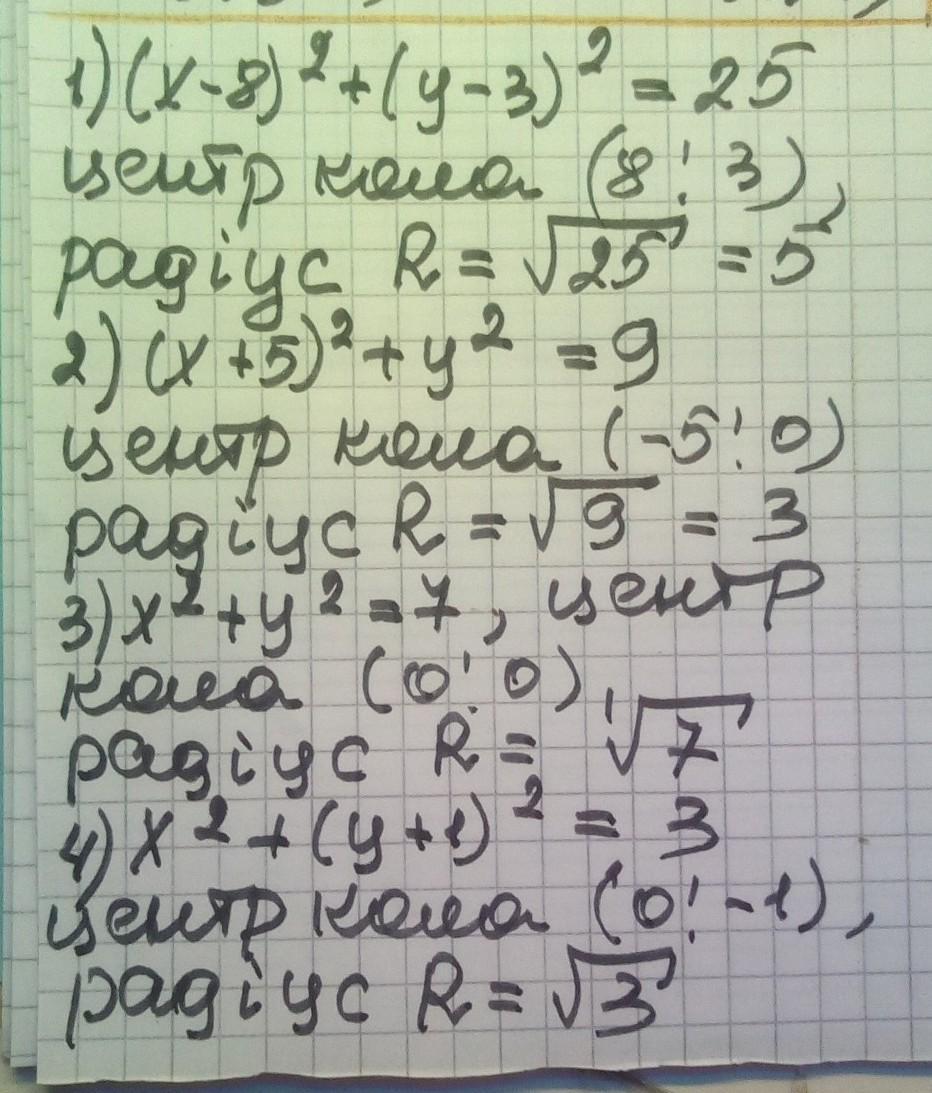 1) (x-8)² + (y-3)² = 25
центр кола (8; 3),
радіус R = √25 = 5
2) (x+5)² + y² = 9
центр кола (-5; 0)
радіус R = √9 = 3
3) x² + y² = 7, центр
кола (0; 0),
радіус R = √7
4) x² + (y+1)² = 3
центр кола (0; -1),
радіус R = √3